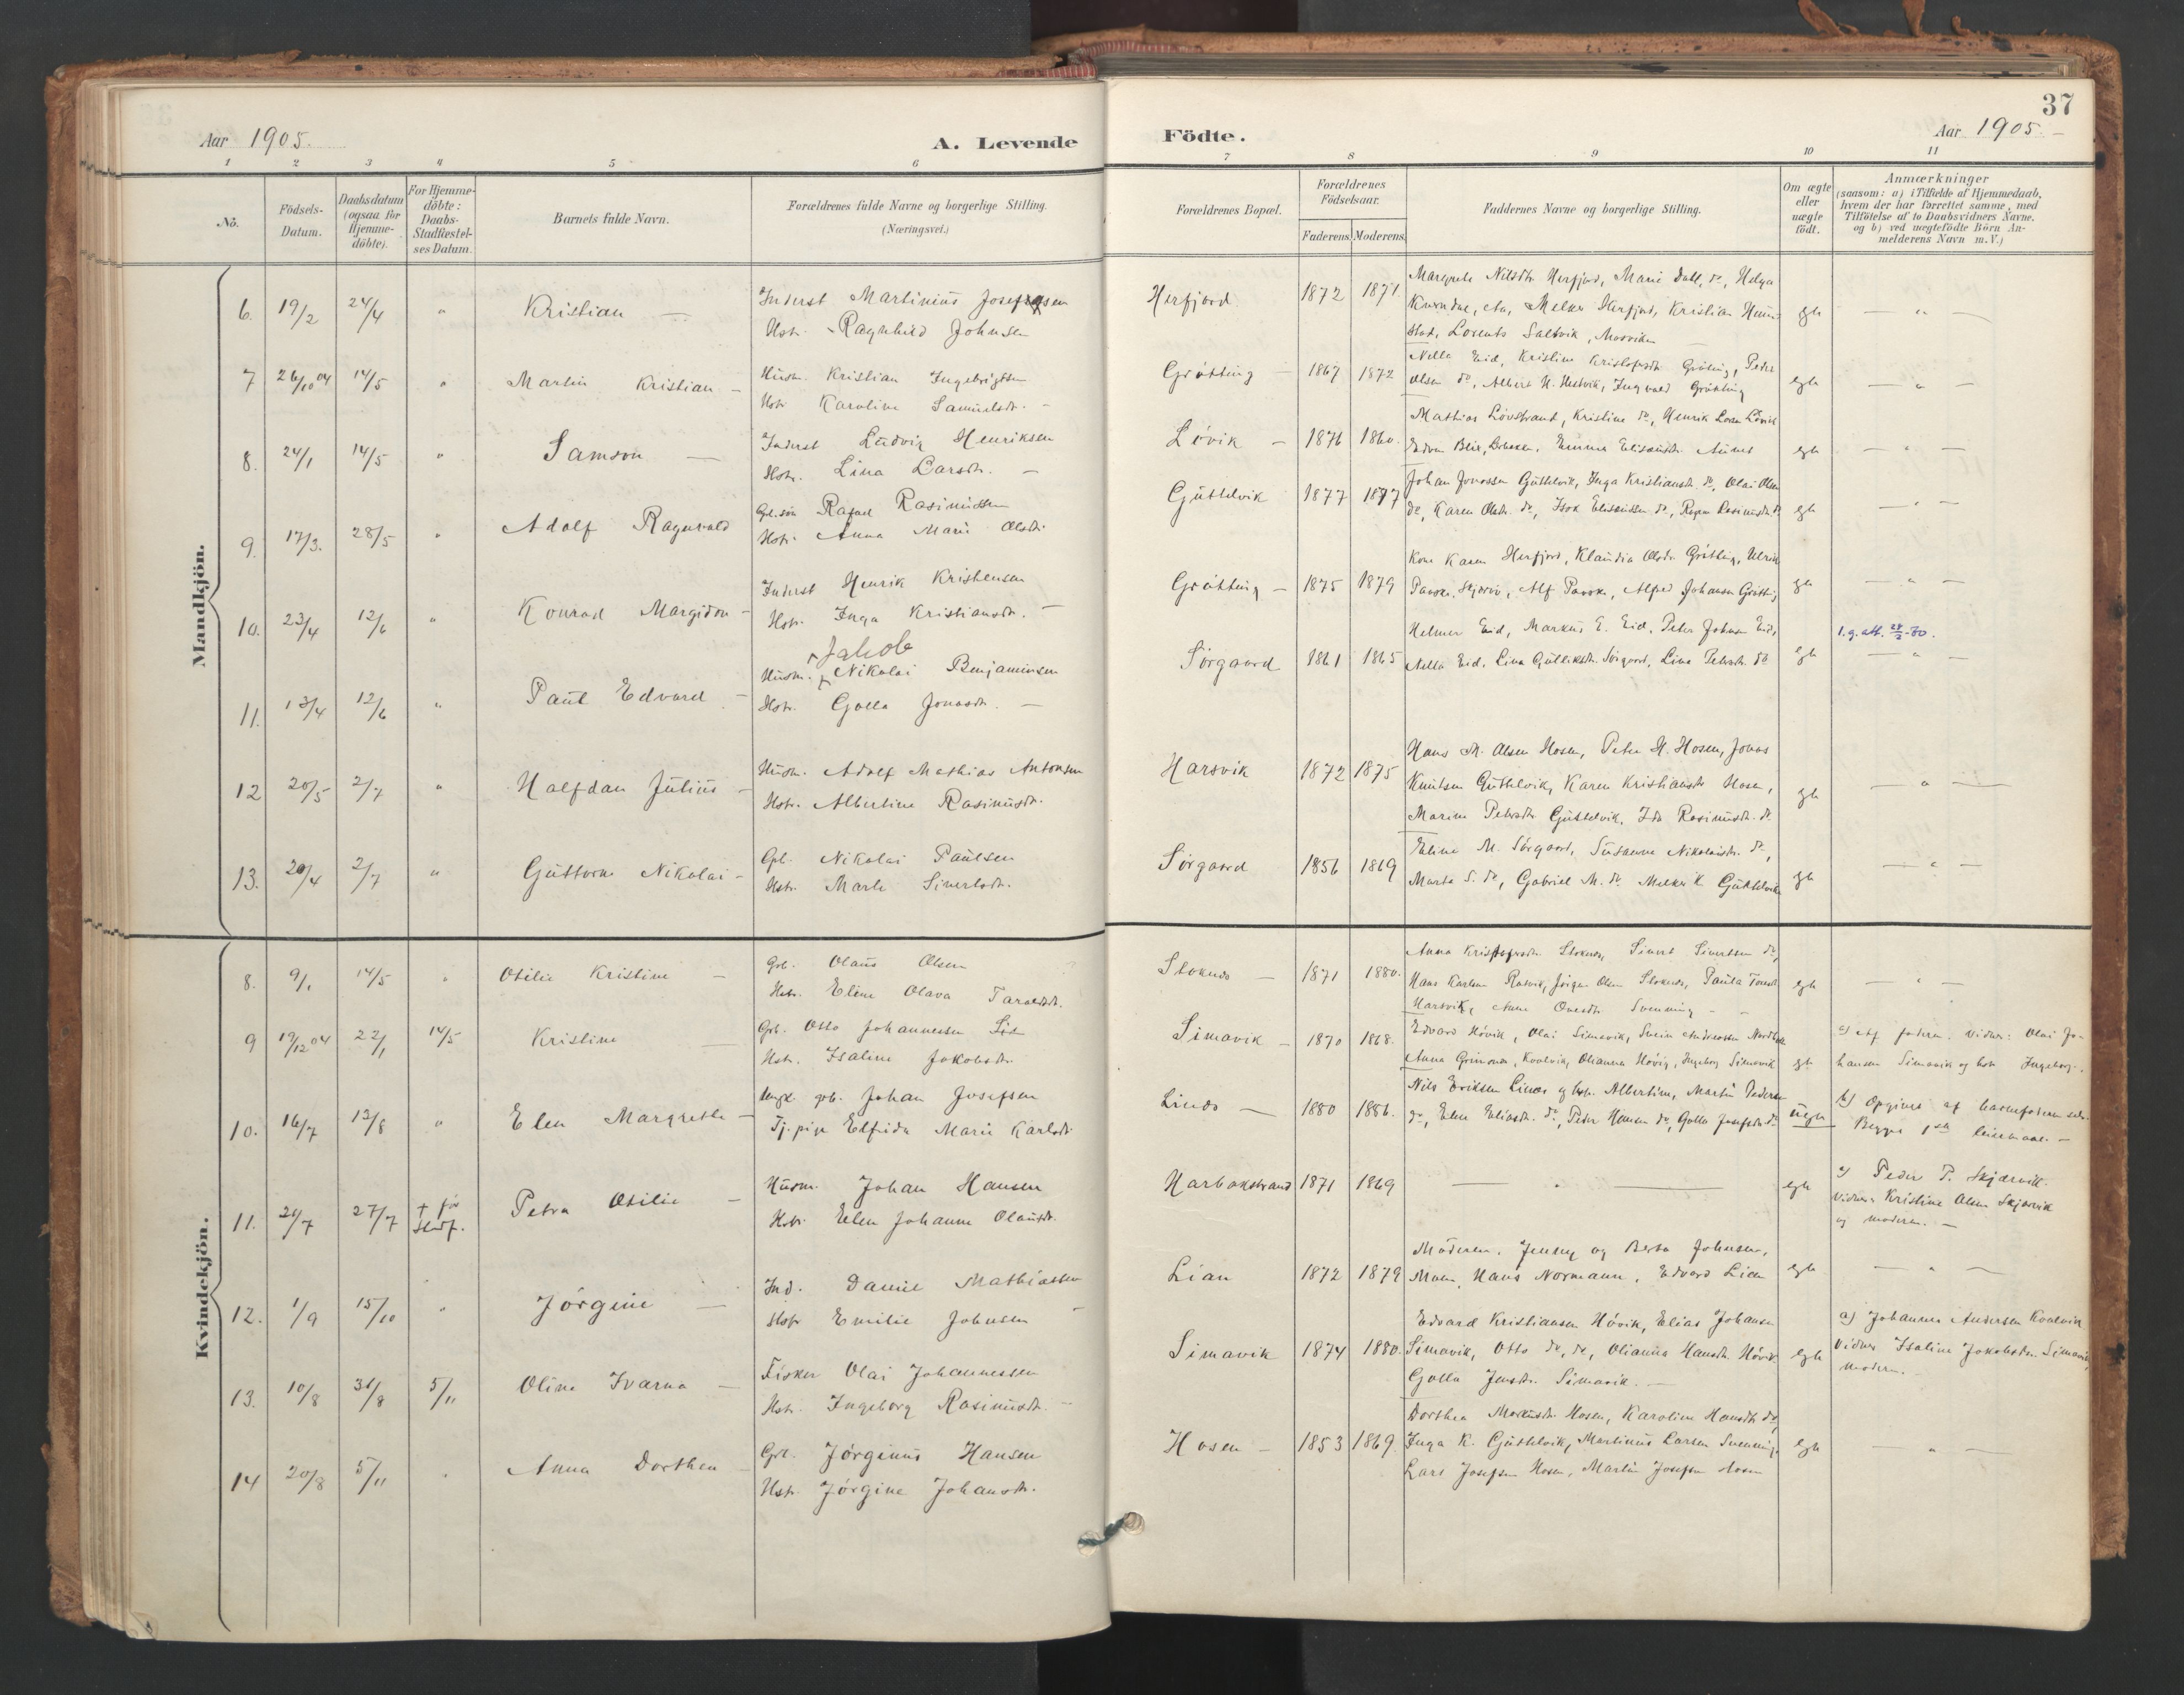 37
Aar 1905.
A. Levende Födte.
Aar 1905.
1 2 3 4 5 6 7 8 9 10 11
No.
Födsels-Datum.
Daabsdatum (ogsaa for Hjemme-döbte).
For Hjemme-döbte: Daabs-Stadfæstel-ses Datum.
Barnets fulde Navn.
Forældrenes fulde Navne og borgerlige Stilling.
(Næringsvei.)
Forældrenes Bopæl.
Forældrenes Födselsaar.
Faderens. Moderens.
Faddernes Navne og borgerlige Stilling.
Om ægte eller uægte födt.
Anmærkninger
(saasom: a) i Tilfælde af Hjemmedaab,
hvem der har forrettet samme, med
Tilföielse af to Daabsvidners Navne.
og b) ved uægtefödte Börn An-
melderens Navn m. V.)
Mandkjön.
6. 19/2 24/4 " Kristian —
Inderst Martinius Josefsen
Hstr. Ragnhild Johnsen
Herfjord 1872 1871
Margrete Nilsdtr Herfjord, Marie Dahl, do, Helga
Melker Herfjord, Kristian
Lorents Saltvik,
egte — " —
7 26/10 04 14/5 " Martin Kristian —
Husm. Kristian Ingebrigtsen
Hstr Karoline Samuelsdtr. —
Grötting — 1867 1872
Nella Eid, Kristine Kristofersdtr Gröting, Peder
Olsen do, Albert H. Ingvald Grötting
egte — " —
8. 24/1 14/5 " Samson —
Inderst Ludvig Henriksen
Hstr. Lina Larsdtr. —
Lövik — 1876 1860.
Mathias Lövstrand, Kristine do, Henrik Lövik
Emma
egte — " —
9. 17/3. 28/5 " Adolf Ragnvald
Gbr.søn Rafael Rasmussen
Hstr. Anna Marie Olsdtr.
Guttelvik 1877 1877
Johan Jonassen Guttelvik, Inga Kristiansdtr. do, Olai Olsen
do, Karen Olsdtr. do, Isak Eliseussen do, Rasmusdtr. do
egte — " —
10. 23/4 12/6 " Konrad Margido —
Inderst Henrik Kristensen
Hstr. Inga Kristiansdtr. —
Grötting — 1875 1879
Kone Karen Herfjord, Klaudia Olsdtr. Grötting, Ulrik
Alf Alfred Johansen Grötting
egte — " —
11. 13/4 12/6 " Paul Edvard —
Jakob
Husm. Nikolai Benjaminsen
Hstr. Golla Jonasdtr. —
Sörgaard 1861 1865
Helmer Eid, Markus E. Eid, Peter Johnsen Eid,
Nella Eid, Lina Gulliksdtr. Sörgaard, Lina Petersdtr. do
egte 1. g. att. 28/2-30.
— " —
12 20/5 2/7 " Halfdan Julius —
Husm. Adolf Mathias Antonsen
Hstr. Albertine Rasmusdtr.
Harsvik 1872 1875
Hans M. Olsen Hosen, Peter H. Hosen, Jonas
Knutsen Guttelvik, Karen Kristiansdtr Hosen,
Marine Petersdtr Guttelvik, Ida Rasmusdtr. do
egte — " —
13. 20/4 2/7 " Guttorm Nikolai —
Gbr. Nikolai Paulsen
Hstr. Marte Sivertsdtr.
Sörgaard 1856 1869
Eline M. Sörgaard, Susanne Nikolaisdtr. do,
Marta S. do, Gabriel M. do. Melker K Guttelvik
egte — " —
Kvindekjön.
8. 9/1 14/5 " Otilie Kristine —
Gbr. Olaus Olsen
Hstr. Eline Olava Taraldsdtr.
Stoknes — 1871 1880.
Anna Kristofersdtr Stoknes, Sivert Sivertsen do,
Hans Karlsen Jörgen Olsen Stoknes, Paula
Harsvik, Anne Svenning —
egte — " —
9 19/12 04 22/1 14/5 Kristine —
Gbr. Otto Johannessen
Hstr. Isaline Jakobsdtr.
Simavik — 1870 1868.
Edvard Hövik, Olai Simavik, Svein Andreassen
Anna Kvalvik, Olianna Hövig, Ingeborg Simavik
egte a) Af faderen. Vidner: Olai Jo-
hansen Simavik og hstr Ingeborg.
10. 16/7 13/8 " Elen Margrethe —
Ungk. gbr. Johan Josefsen
Tj.pige Elfrida Marie Karlsdtr
Linds — 1880 1886.
Nils Eriksen og hstr. Albertine, Martin Pedersen
do, Elen Eliasdtr. do, Peder Hansen do, Golla Josefsdtr. do
uegte b) Opgivet af barnefaderen selv.
Begges 1ste leiermaal. —
11. 26/7 27/7 † för stadf. Petra Otilie —
Husm. Johan Hansen
Hstr. Elen Johanne Olausdtr.
Harbakstrand 1871 1869
— " —
egte a) Peder P. Skjærvik.
Vidner: Kristine Olsen Skjærvik
og moderen. —
12. 1/9 15/10 " Jörgine —
Ind. Daniel Mathiassen
Hstr Emilie Johnsen
Lian 1872 1879
Moderen, Jenny og Berta Johnsen,
Hans Normann, Edvard Lien
egte — " —
13. 10/8 31/8 5/11 Oline Ivarna —
Fisker Olai Johannessen
Hstr. Ingeborg Rasmusdtr. —
Simavik 1874 1880.
Edvard Kristiansen Hövik, Elias Johansen
Simavik, Otto do, do, Olianna Hansdtr. Hövik
Golla Jensdtr. Simavik. —
egte a) Johannes Andersen Kvalvik
Vidner Isaline Jakobsdtr. Simavik,
moderen. —
14 20/8 5/11 " Anna Dorthea —
Gbr. Jörginus Hansen
Hstr. Jörgine Johansdtr.
Hosen — 1853 1869
Dorthea Markusdtr. Hosen, Karoline Hansdtr. do,
Inga K. Guttelvik, Martinus Larsen Svenning,
Lars Josefsen Hosen, Martin Josefsen Hosen
egte — " —